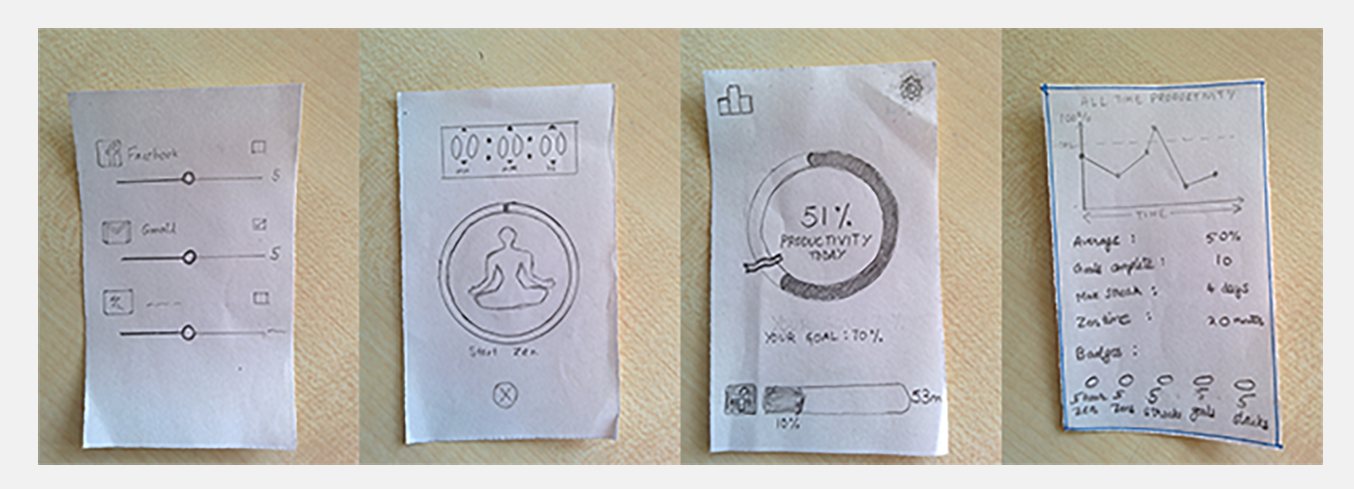 Facebook
5
Gmail
5
00 : 00 : 00
Start Zen
51%
PRODUCTIVITY
TODAY
YOUR GOAL : 70%
53m
10%
ALL TIME PRODUCTIVITY
100%
TIME
Average : 50%
Goals complete : 10
Max streak : 4 days
Zen time : 20 minutes
Badges :
5 hour 5 5 5 5
zen zens streaks goals